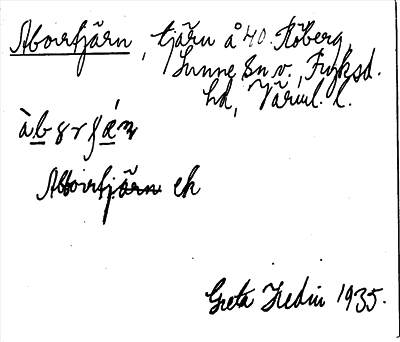 Aborrtjärn, tjärn å 40. Röberg,
Sunne sn v., Fryksd.
hd, Värml. l.
Abborrtjärn ek
Greta Hedin 1935.